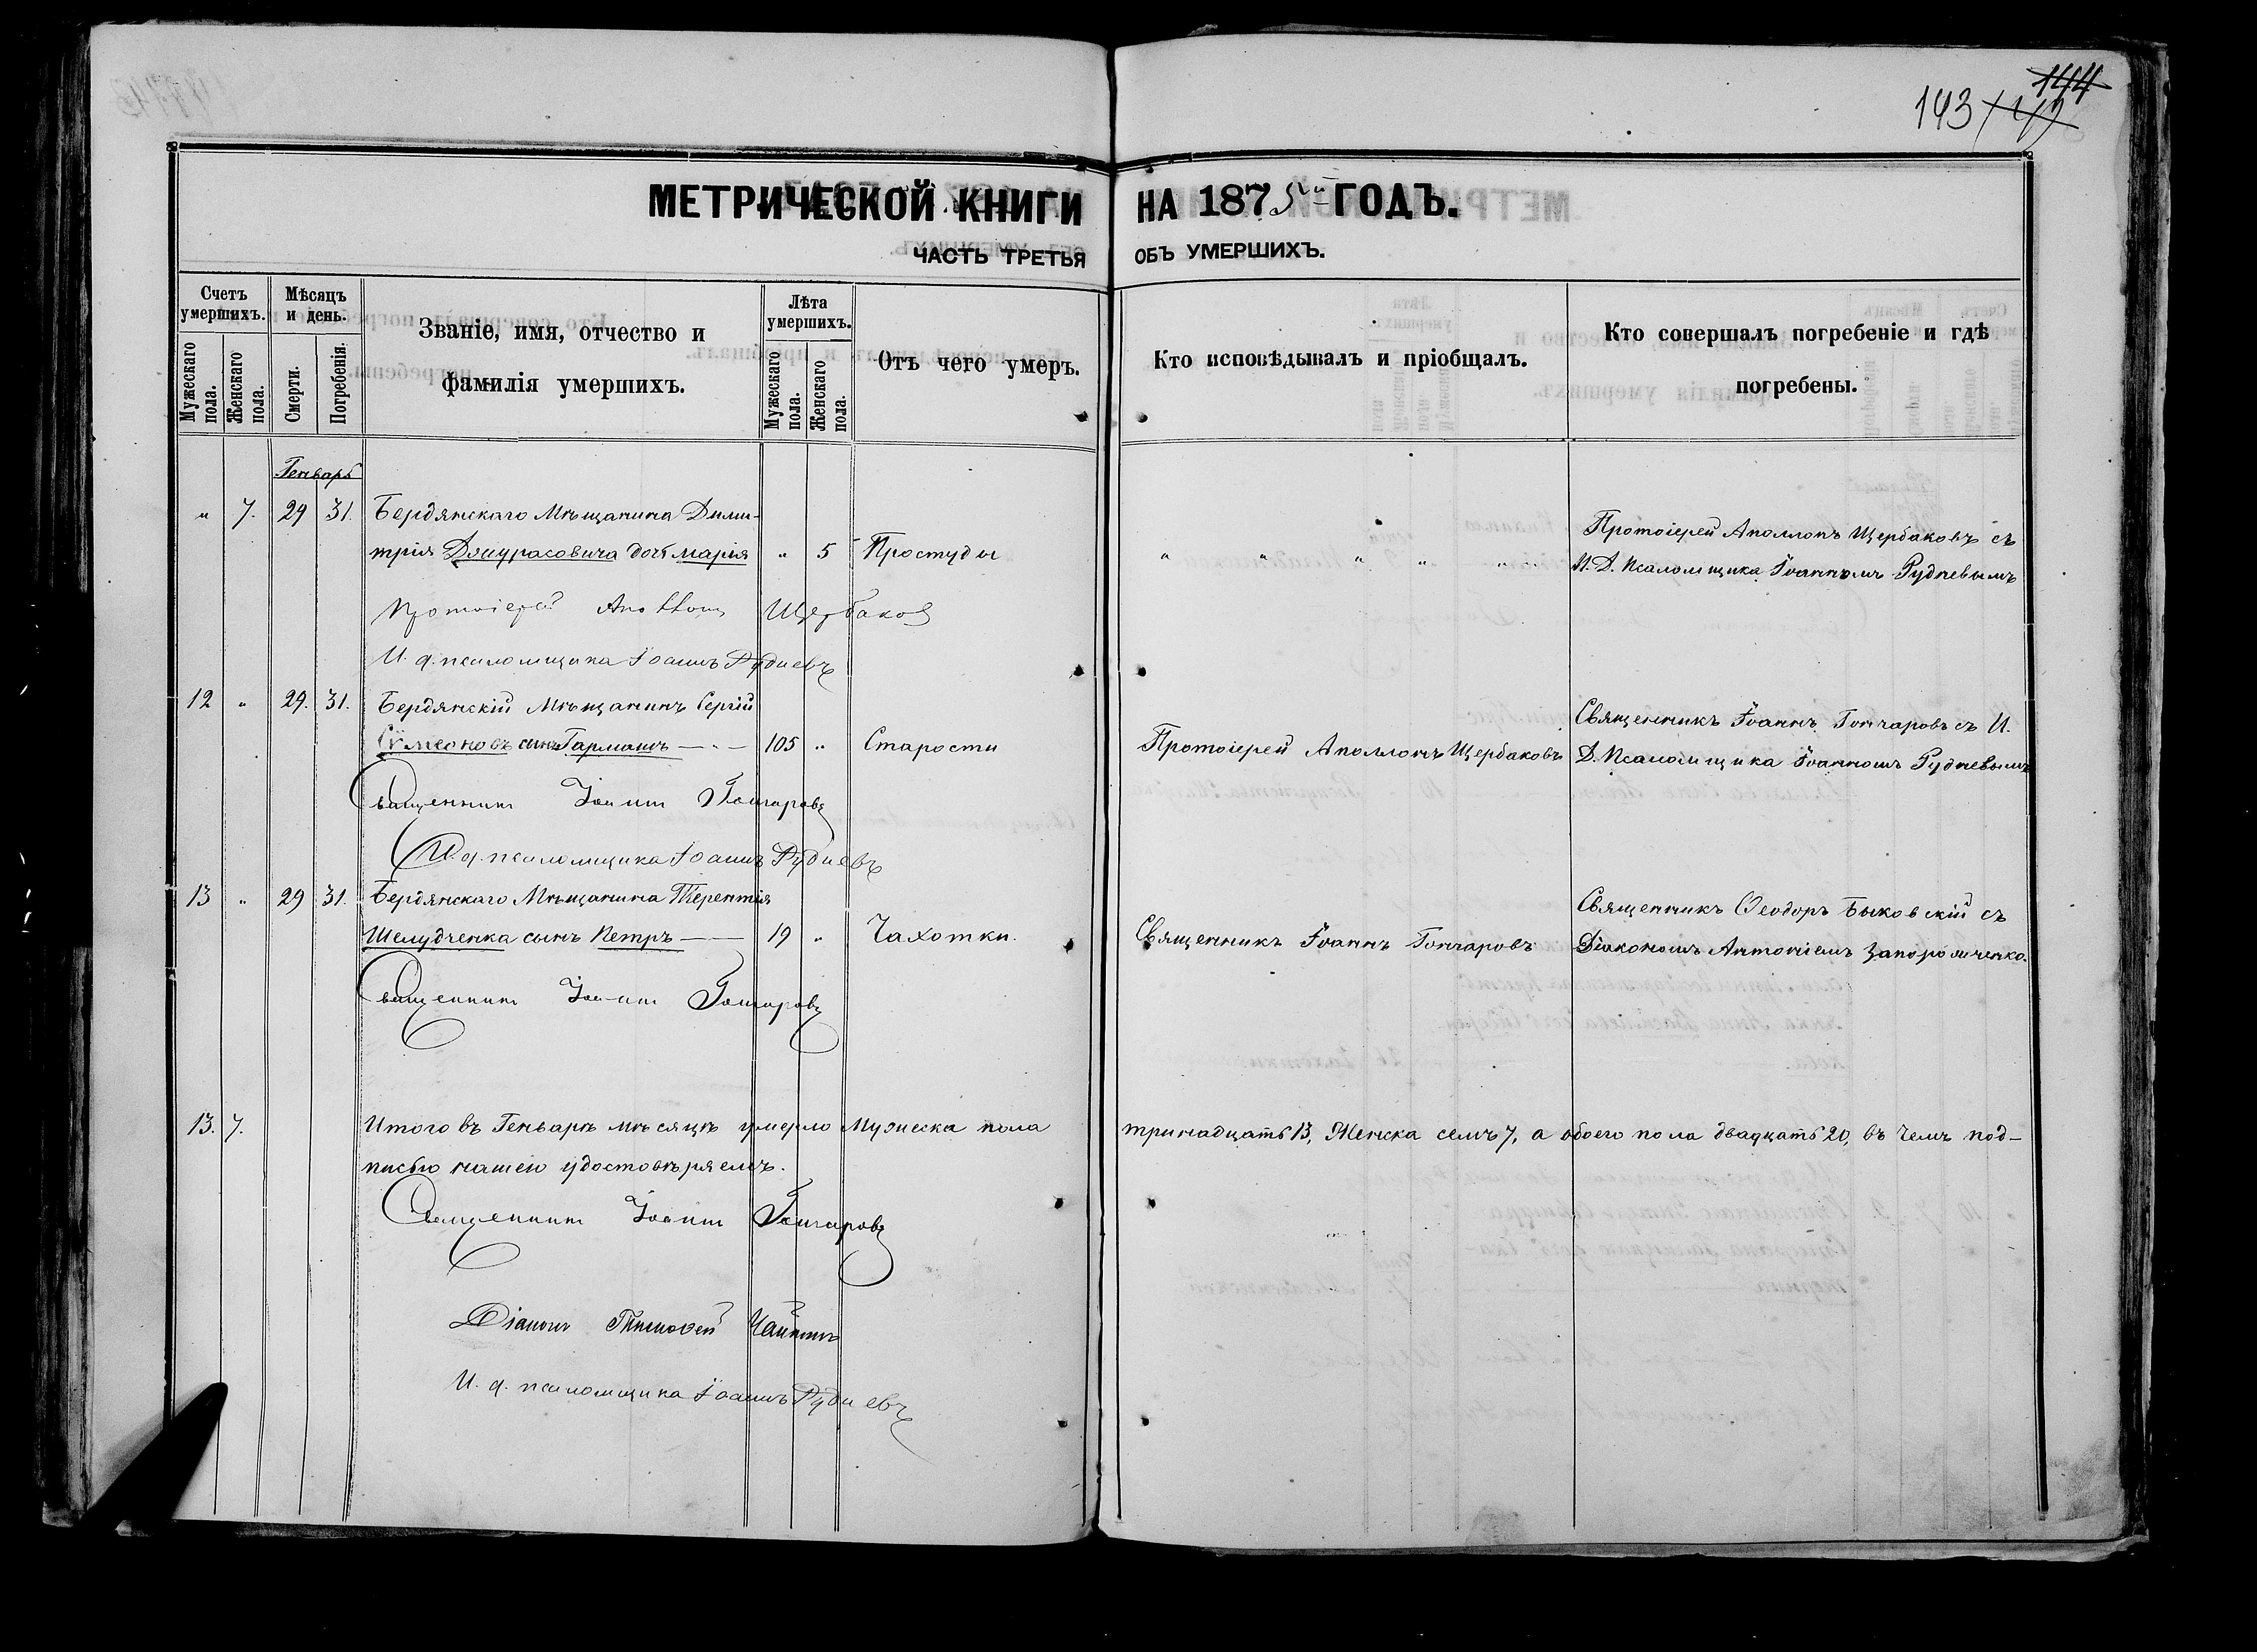 144
143
МЕТРИЧЕСКОЙ КНИГИ НА 1875й ГОДЪ.
ЧАСТЬ ТРЕТЬЯ ОБЪ УМЕРШИХЪ.
Счетъ умершихъ.
Мужескаго пола.
Женскаго пола.
Мѣсяцъ и день.
Смерти.
Погребенія.
Званіе, имя, отчество и
фамилія умершихъ.
Лѣта умершихъ.
Мужескаго пола.
Женскаго пола.
Отъ чего умеръ.
Кто исповѣдывалъ и пріобщалъ.
Кто совершалъ погребеніе и гдѣ
погребены.
Генварь
" 7. 29 31. Бердянскаго Мѣщанина Дими-
трія дочь Марія " 5 Простуды " " " " " "
Протоіерей Аполлонъ Щербаковъ съ
И. Д. Псаломщика Іоанномъ Рудневымъ
Протоіерей Аполлонъ Щербаков
И. д. псаломщика Іоаннъ Рудневъ
12 " 29. 31. Бердянскій Мѣщанинъ Сергій
Сѵмеоновъ сынъ Гарманъ 105 " Старости Протоіерей Аполлонъ Щербаковъ
Священникъ Іоаннъ Гончаровъ съ И.
Д. Псаломщика Іоанномъ Рудневымъ
Священникъ Іоаннъ Гончаровъ
И. д. псаломщика Іоаннъ Рудневъ
13 " 29 31. Бердянскаго Мѣщанина Терентія
Шелудченка сынъ Петръ 19 " Чахотки. Священникъ Іоаннъ Гончаровъ
Священникъ Ѳеодоръ Быковскій съ
Діакономъ Антоніемъ Запорожченко.
Священникъ Іоаннъ Гончаровъ
13. 7. Итого въ Генварѣ мѣсяцѣ умерло Мужеска пола тринадцать 13, Женска семь 7, а обоего пола двадцать 20, въ чемъ под-
писью нашею удостовѣряемъ.
Священникъ Іоаннъ Гончаровъ
Діаконъ Тимоѳей
И. д. псаломщика Іоаннъ Рудневъ